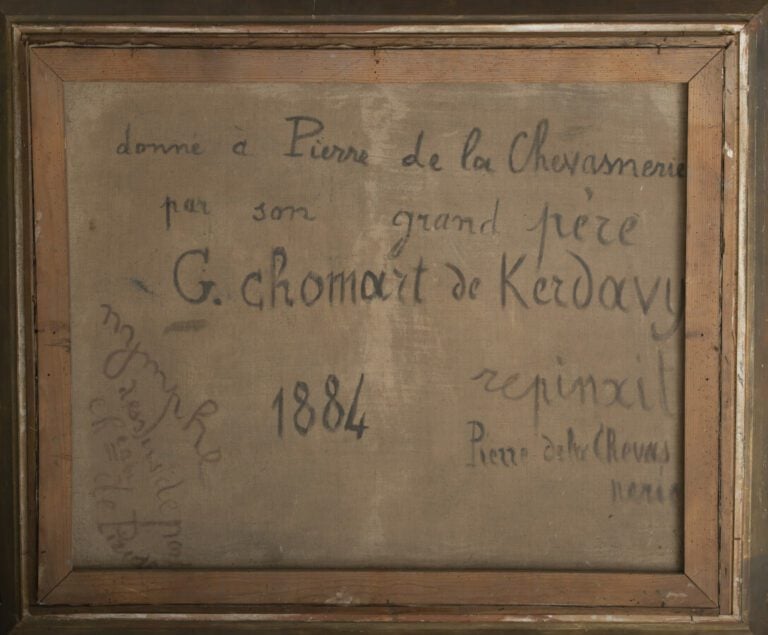 donné à Pierre de la Chevasnerie
par son grand père
G. chomart de Kerdavy
1884
repinxit
Pierre de la Chevas
nerie
nymphe